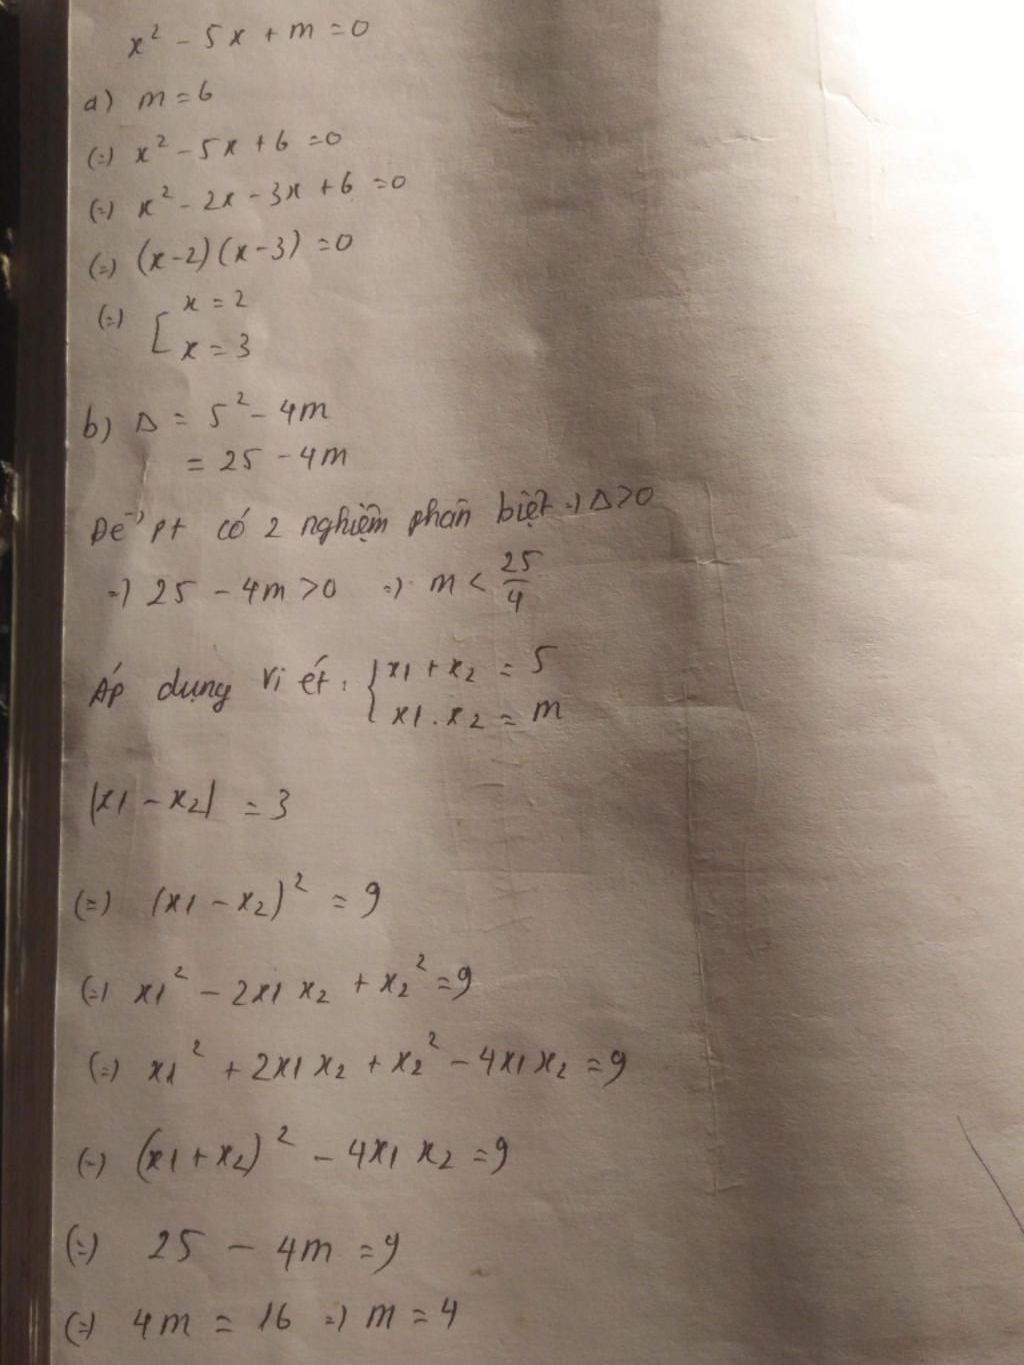 x² - 5x + m = 0
a) m = 6
(=) x² - 5x + 6 = 0
(=) x² - 2x - 3x + 6 = 0
(=) (x-2)(x-3) = 0
(=) [ x = 2
x = 3
b) Δ = 5² - 4m
= 25 - 4m
Để pt có 2 nghiệm phân biệt =) Δ>0
=) 25 - 4m > 0 =) m < 25/4
Áp dụng Vi ét: { x1 + x2 = 5
x1 . x2 = m
|x1 - x2| = 3
(=) (x1 - x2)² = 9
(=) x1² - 2x1 x2 + x2² = 9
(=) x1² + 2x1 x2 + x2² - 4x1 x2 = 9
(=) (x1 + x2)² - 4x1 x2 = 9
(=) 25 - 4m = 9
(=) 4m = 16 =) m = 4